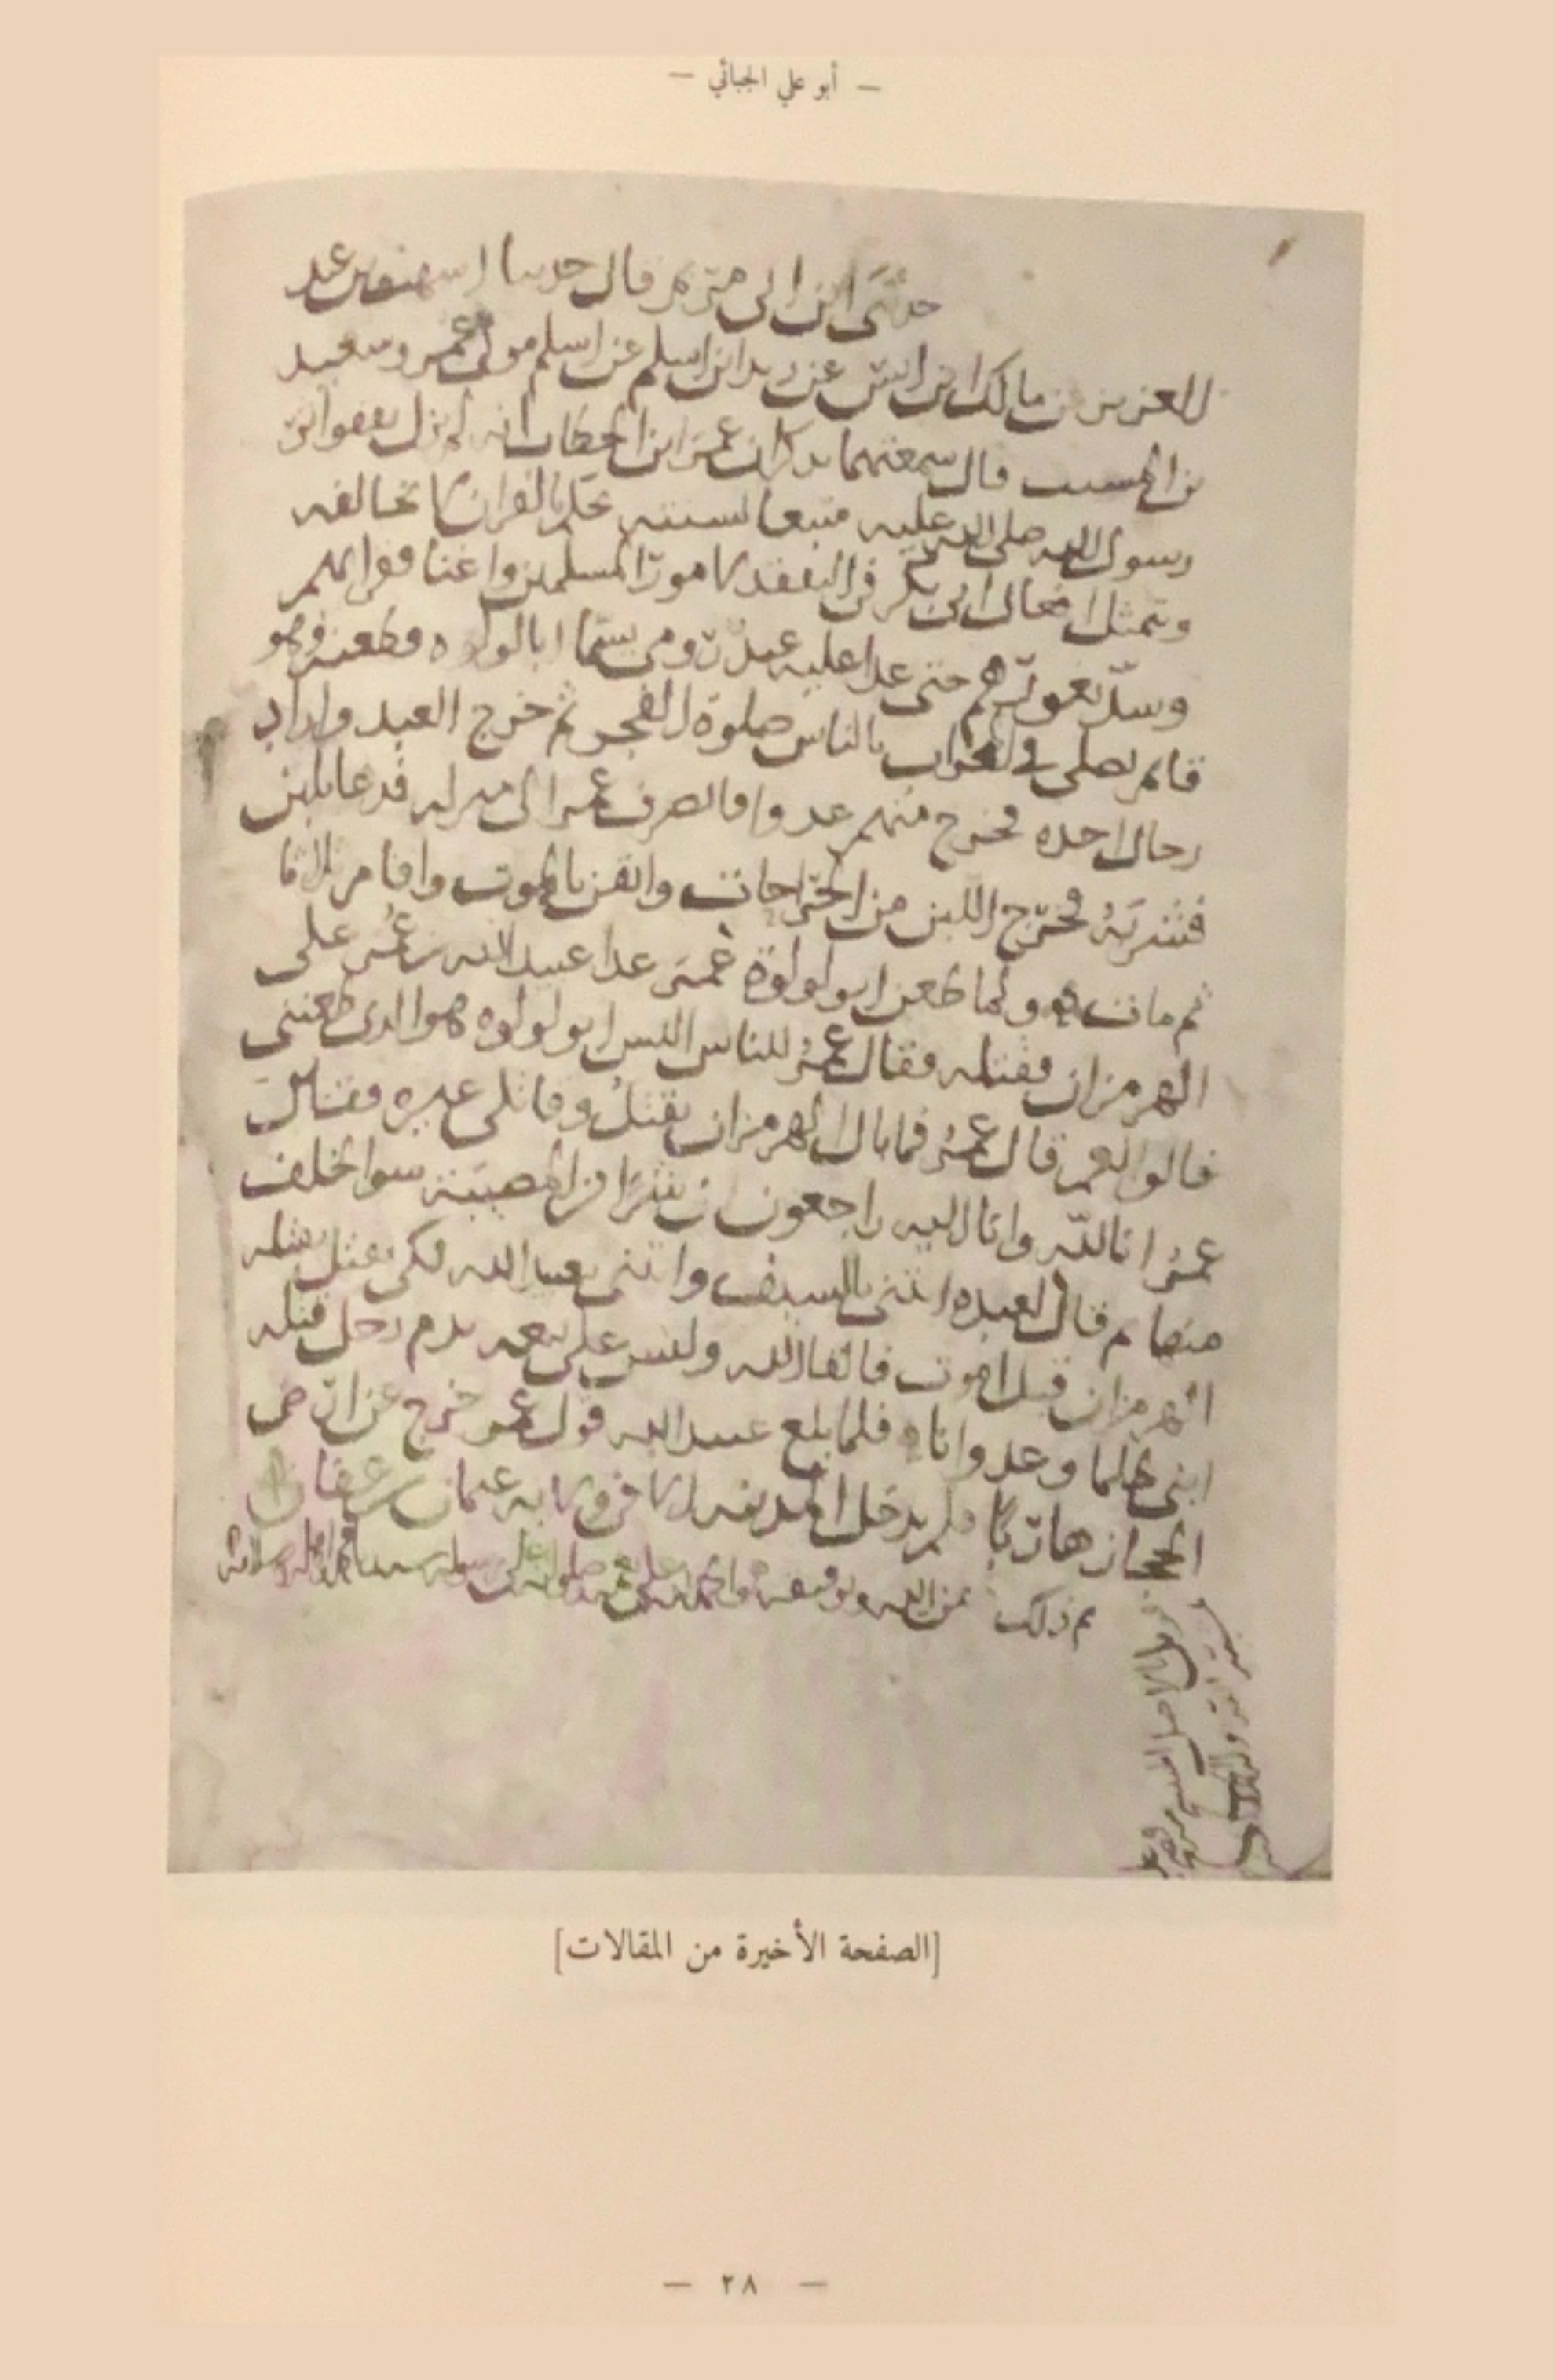 — أبو علي الجبائي —
حدثني ابن ابي مريم قال حدثنا اشهب بن عبد
العزيز عن مالك ابن انس عن زيد ابن اسلم عن اسلم مولى عمر وسعيد
بن المسيب قال سمعتهما يذكران عمر ابن الخطاب انه لم يزل يقفوا اثر
رسول الله صلى الله عليه متبعا لسنته القران لا تخالفه
ويتمثل افعال ابي بكر في امور المسلمين واغنا فقرايهم
وسد ثغورهم حتى عدا عليه عبد رومي يسما ابا لولوه فطعنه وهو
قايم يصلي في المحراب بالناس صلوة الفجر ثم خرج العبد واراد
رجال اخذه فخرج منهم عدوا فانصرف عمر الى منزله فدعا بلبن
فشربه فخرج اللبن من الجراحات وايقن بالموت واقام ثلاثا
ثم مات ولما طعن ابو لولوة عمر عدا عبيد الله بن عمر على
الهرمزان فقتله فقال عمر للناس اليس ابو لولوه هوا الذي طعنني
قالوا نعم قال عمر فما بال الهرمزان يقتل وقاتلي غيره فقال
عمر انا لله وانا اليه راجعون ان شرا من المصيبة سوا الخلف
منها ثم قال لعبده ائتني بالسيف وائتني بعبيد الله لكي
الهرمزان قبل اموت فالقا الله وليس علي تبعه بدم رجل قتله
ابني ظلما وعدوانا فلما بلغ عبيد الله قول عمر خرج عن ارض
الحجاز هاربا فلم يدخل المدينه الا في ولايه عثمان بن عفان
تم ذلك بمن الله وتوفيقه والحمد لله
[الصفحة الأخيرة من المقالات]
— ٢٨ —